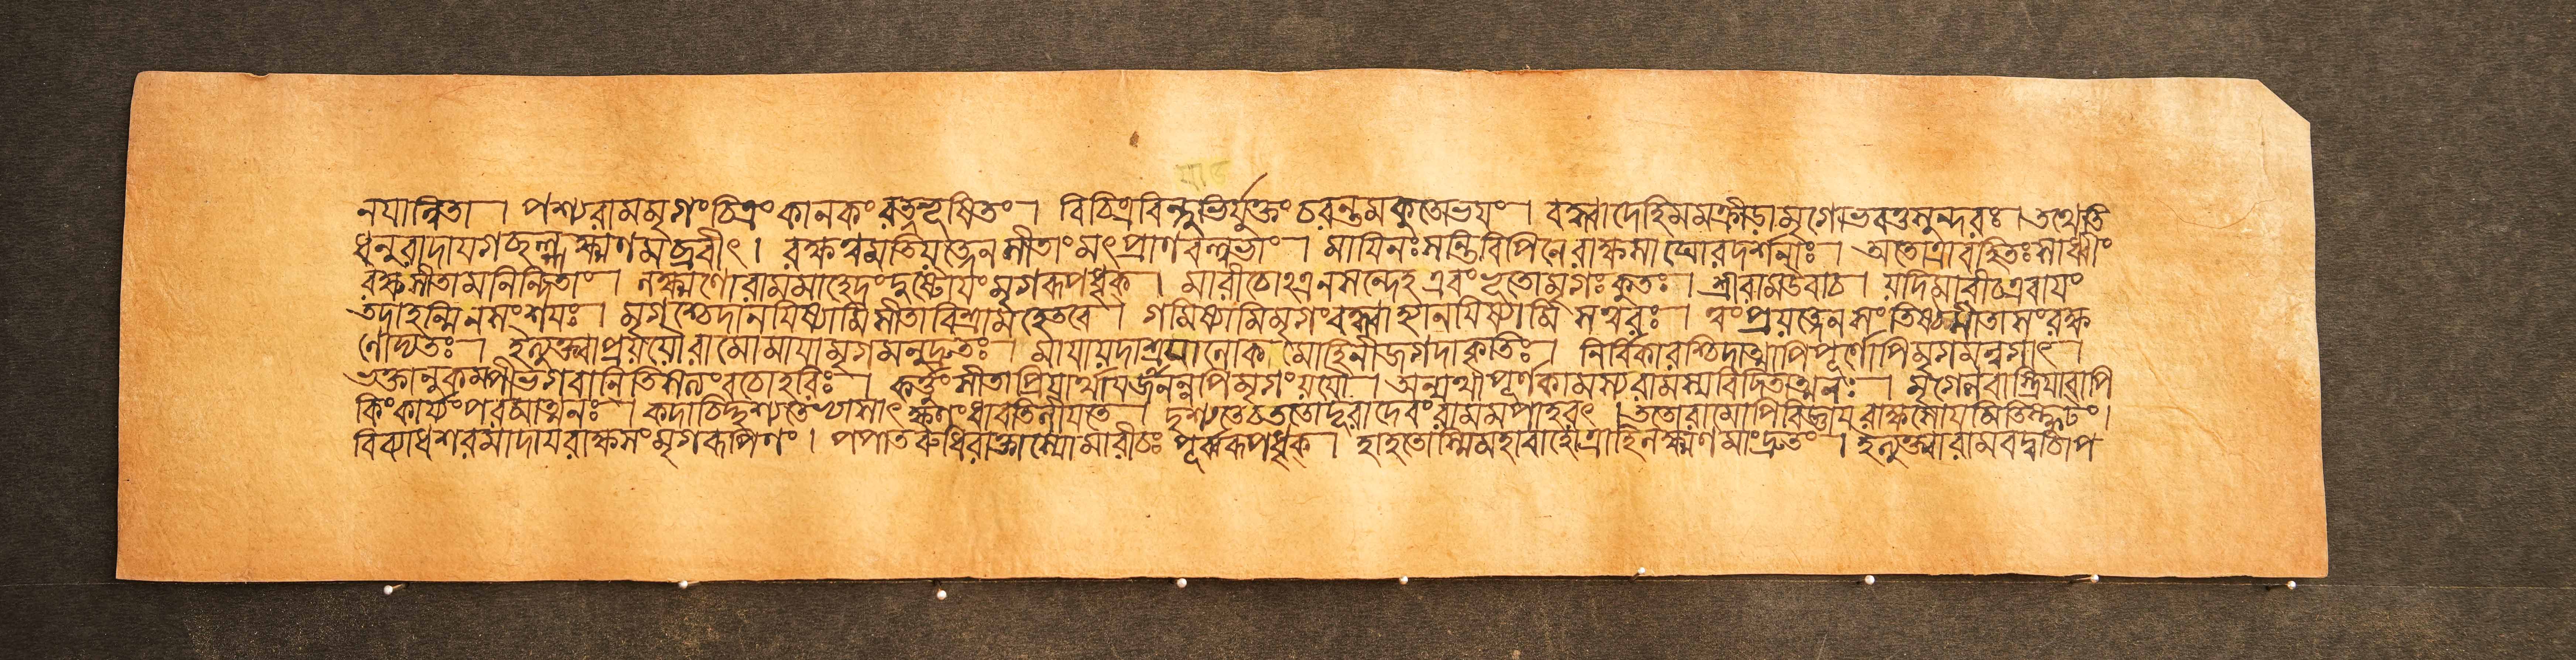 নয়ান্বিতা । পশ্যরামমৃগংচিত্রংকানকংরত্নভূষিতং । বিচিত্রবিন্দুভির্যুক্তংচরন্তমকুতোভয়ং । বদ্ধ্বাদেহিমমক্রীড়ামৃগোভবতুসুন্দরঃ । তথেতি
ধনুরাদায়গচ্ছল্লক্ষ্মণমব্রবীৎ । রক্ষত্বমতিযত্নেনসীতাংমৎপ্রাণবল্লভাং । মায়িনঃসন্তিবিপিনেরাক্ষসাঘোরদর্শনাঃ । অতোত্রাবহিতঃসাধ্বীং
রক্ষসীতামনিন্দিতাং । লক্ষ্মণোরামমাহেদংদেবোয়ংমৃগরূপধৃক্ । মারীচোঽত্রনসন্দেহএবংভূতোমৃগঃকুতঃ । শ্রীরামউবাচ । যদিমারীচএবায়ং
তদাহন্মিনসংশয়ঃ । মৃগশ্চেদানয়িষ্যামিসীতাবিশ্রামহেতবে । গমিষ্যামিমৃগংবদ্ধ্বাহ্যানয়িষ্যামিসত্বরঃ । ত্বংপ্রযত্নেনসংতিষ্ঠসীতাসংরক্ষ
ণোদ্যতঃ । ইত্যুক্ত্বাপ্রযযৌরামোমায়ামৃগমনুদ্রুতঃ । মায়াযদাশ্রয়ালোকমোহিনীজগদাকৃতিঃ । নির্বিকারশ্চিদাত্মাপিপূর্ণোপিমৃগমন্বগাৎ ।
ভক্তানুকম্পীভগবানিতিসত্যংবচোহরিঃ । কর্ত্তুংসীতাপ্রিয়ার্থায়জানন্নপিমৃগংযযৌ । অন্যথাপূর্ণকামস্যরামস্যবিদিতাত্মনঃ । মৃগেণবাস্ত্রিয়াবাপি
কিংকার্য্যংপরমাত্মনঃ । কদাচিদ্দৃশ্যতেভ্যাসাৎক্ষণংধাবতিলীয়তে । দৃশ্যতেচততোদূরাদেবংরামমপাহরৎ । ততোরামোপিবিজ্ঞায়রাক্ষসোয়মিতিস্ফুটং ।
বিব্যাধশরমাদায়রাক্ষসংমৃগরূপিণং । পপাতরুধিরাক্তাস্যোমারীচঃপূর্ব্বরূপধৃক্ । হাহতোস্মিমহাবাহোত্রাহিলক্ষ্মণমাংদ্রুতং । ইত্যুক্ত্বারামবদ্বাচাপ